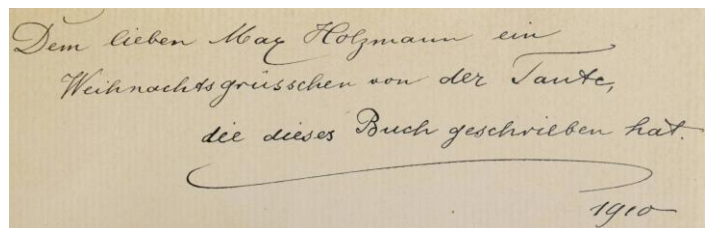 Dem lieben Max Holzmann ein
Weihnachtsgrüsschen von der Tante,
die dieses Buch geschrieben hat.
1910